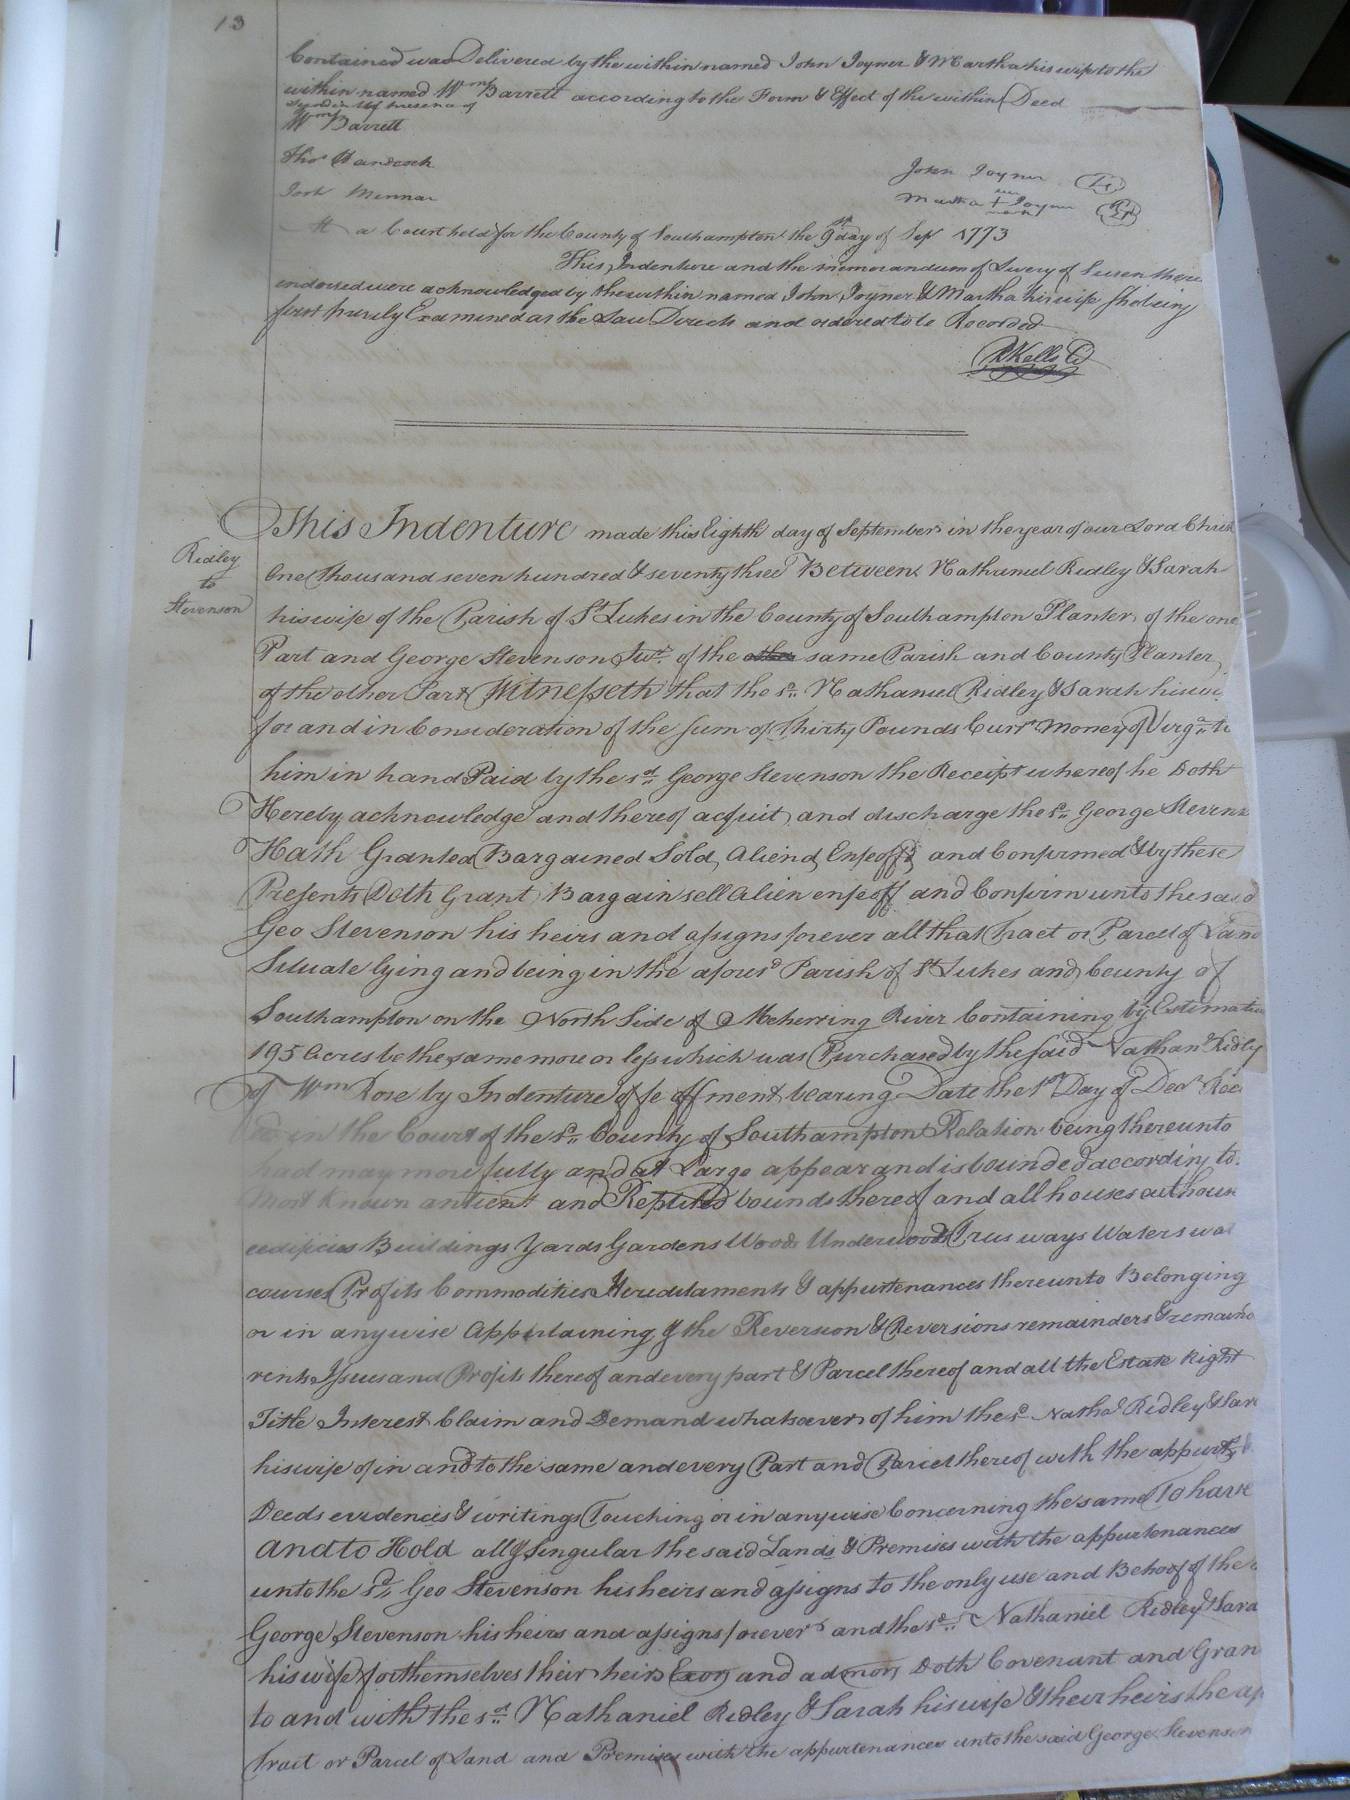 13
Contained was Delivered by the within named John Joyner & Martha his wife to the
within named Wm Barrett according to the Form & Effect of the within Deed
Wm Barrett
Thos Handcock
John Joyner Ls
Martha + Joyner Ls
her
mark
At a Court held for the County of Southampton the 9th day of Sep 1773
This Indenture and the memorandum of Livery of Seisen there
endorsed were acknowledged by the within named John Joyner & Martha his wife she being
first privily Examined as the Law Directs and ordered to be Recorded
RKells Cl
Ridley
to
Stevenson
This Indenture made this Eighth day of September in the year of our Lord Christ
One thousand seven hundred & seventy three Between Nathaniel Ridley & Sarah
his wife of the Parish of St Lukes in the County of Southampton Planter of the one
Part and George Stevenson Junr of the other same Parish and County Planter
of the other Part Witnesseth that the sd Nathaniel Ridley & Sarah his wi
for and in Consideration of the sum of Thirty Pounds Currt Money of Virga to
him in hand Paid by the sd George Stevenson the Receipt whereof he Doth
Hereby acknowledge and thereof acquit and discharge the sd George Stevens
Hath Granted Bargained Sold, Aliend, Enfeoff'd and Confirmed & by these
Presents Doth Grant Bargain sell alien enfeoff and Confirm unto the said
Geo Stevenson his heirs and assigns forever all that Tract or Parcel of Land
Situate lying and being in the afousd Parish of St Lukes and County of
Southampton on the North Side of Meherring River Containing by Estimation
195 Acres be the same more or less which was Purchased by the said Nathanl Ridley
of Wm Rose by Indenture of feoffment bearing Date the 1st Day of Decr Rec
in the Court of the sd County of Southampton Relation being thereunto
had may more fully and at Large appear and is bounded according to
Most Known antient and Reputed bounds thereof and all houses outhous
eedificies Buildings Yards Gardens Woods Underwoods Trees ways Waters wat
courses Profits Commodities Hereditaments & appurtenances thereunto Belonging
or in anywise Appertaining & the Reversion & Reversions remainders & remaind
rents Issues and Profits thereof and every part & Parcel thereof and all the Estate Right
Title Interest Claim and Demand whatsoever of him the sd Nathal Ridley & Sar
his wife of in and to the same and every Part and Parcel thereof with the appurts
Deeds evidences & writings Touching or in anywise Concerning the same To have
and to Hold all & Singular the said Lands & Premises with the appurtenances
unto the sd Geo Stevenson his heirs and assigns to the only use and Behoof of the
George Stevenson his heirs and assigns forever and the sd Nathaniel Ridley & Sara
his wife for themselves their heirs Exors and admors Doth Covenant and Gran
to and with the sd Nathaniel Ridley & Sarah his wife & their heirs the af
Tract or Parcel of Land and Premises with the appurtenances unto the said George Stevenson